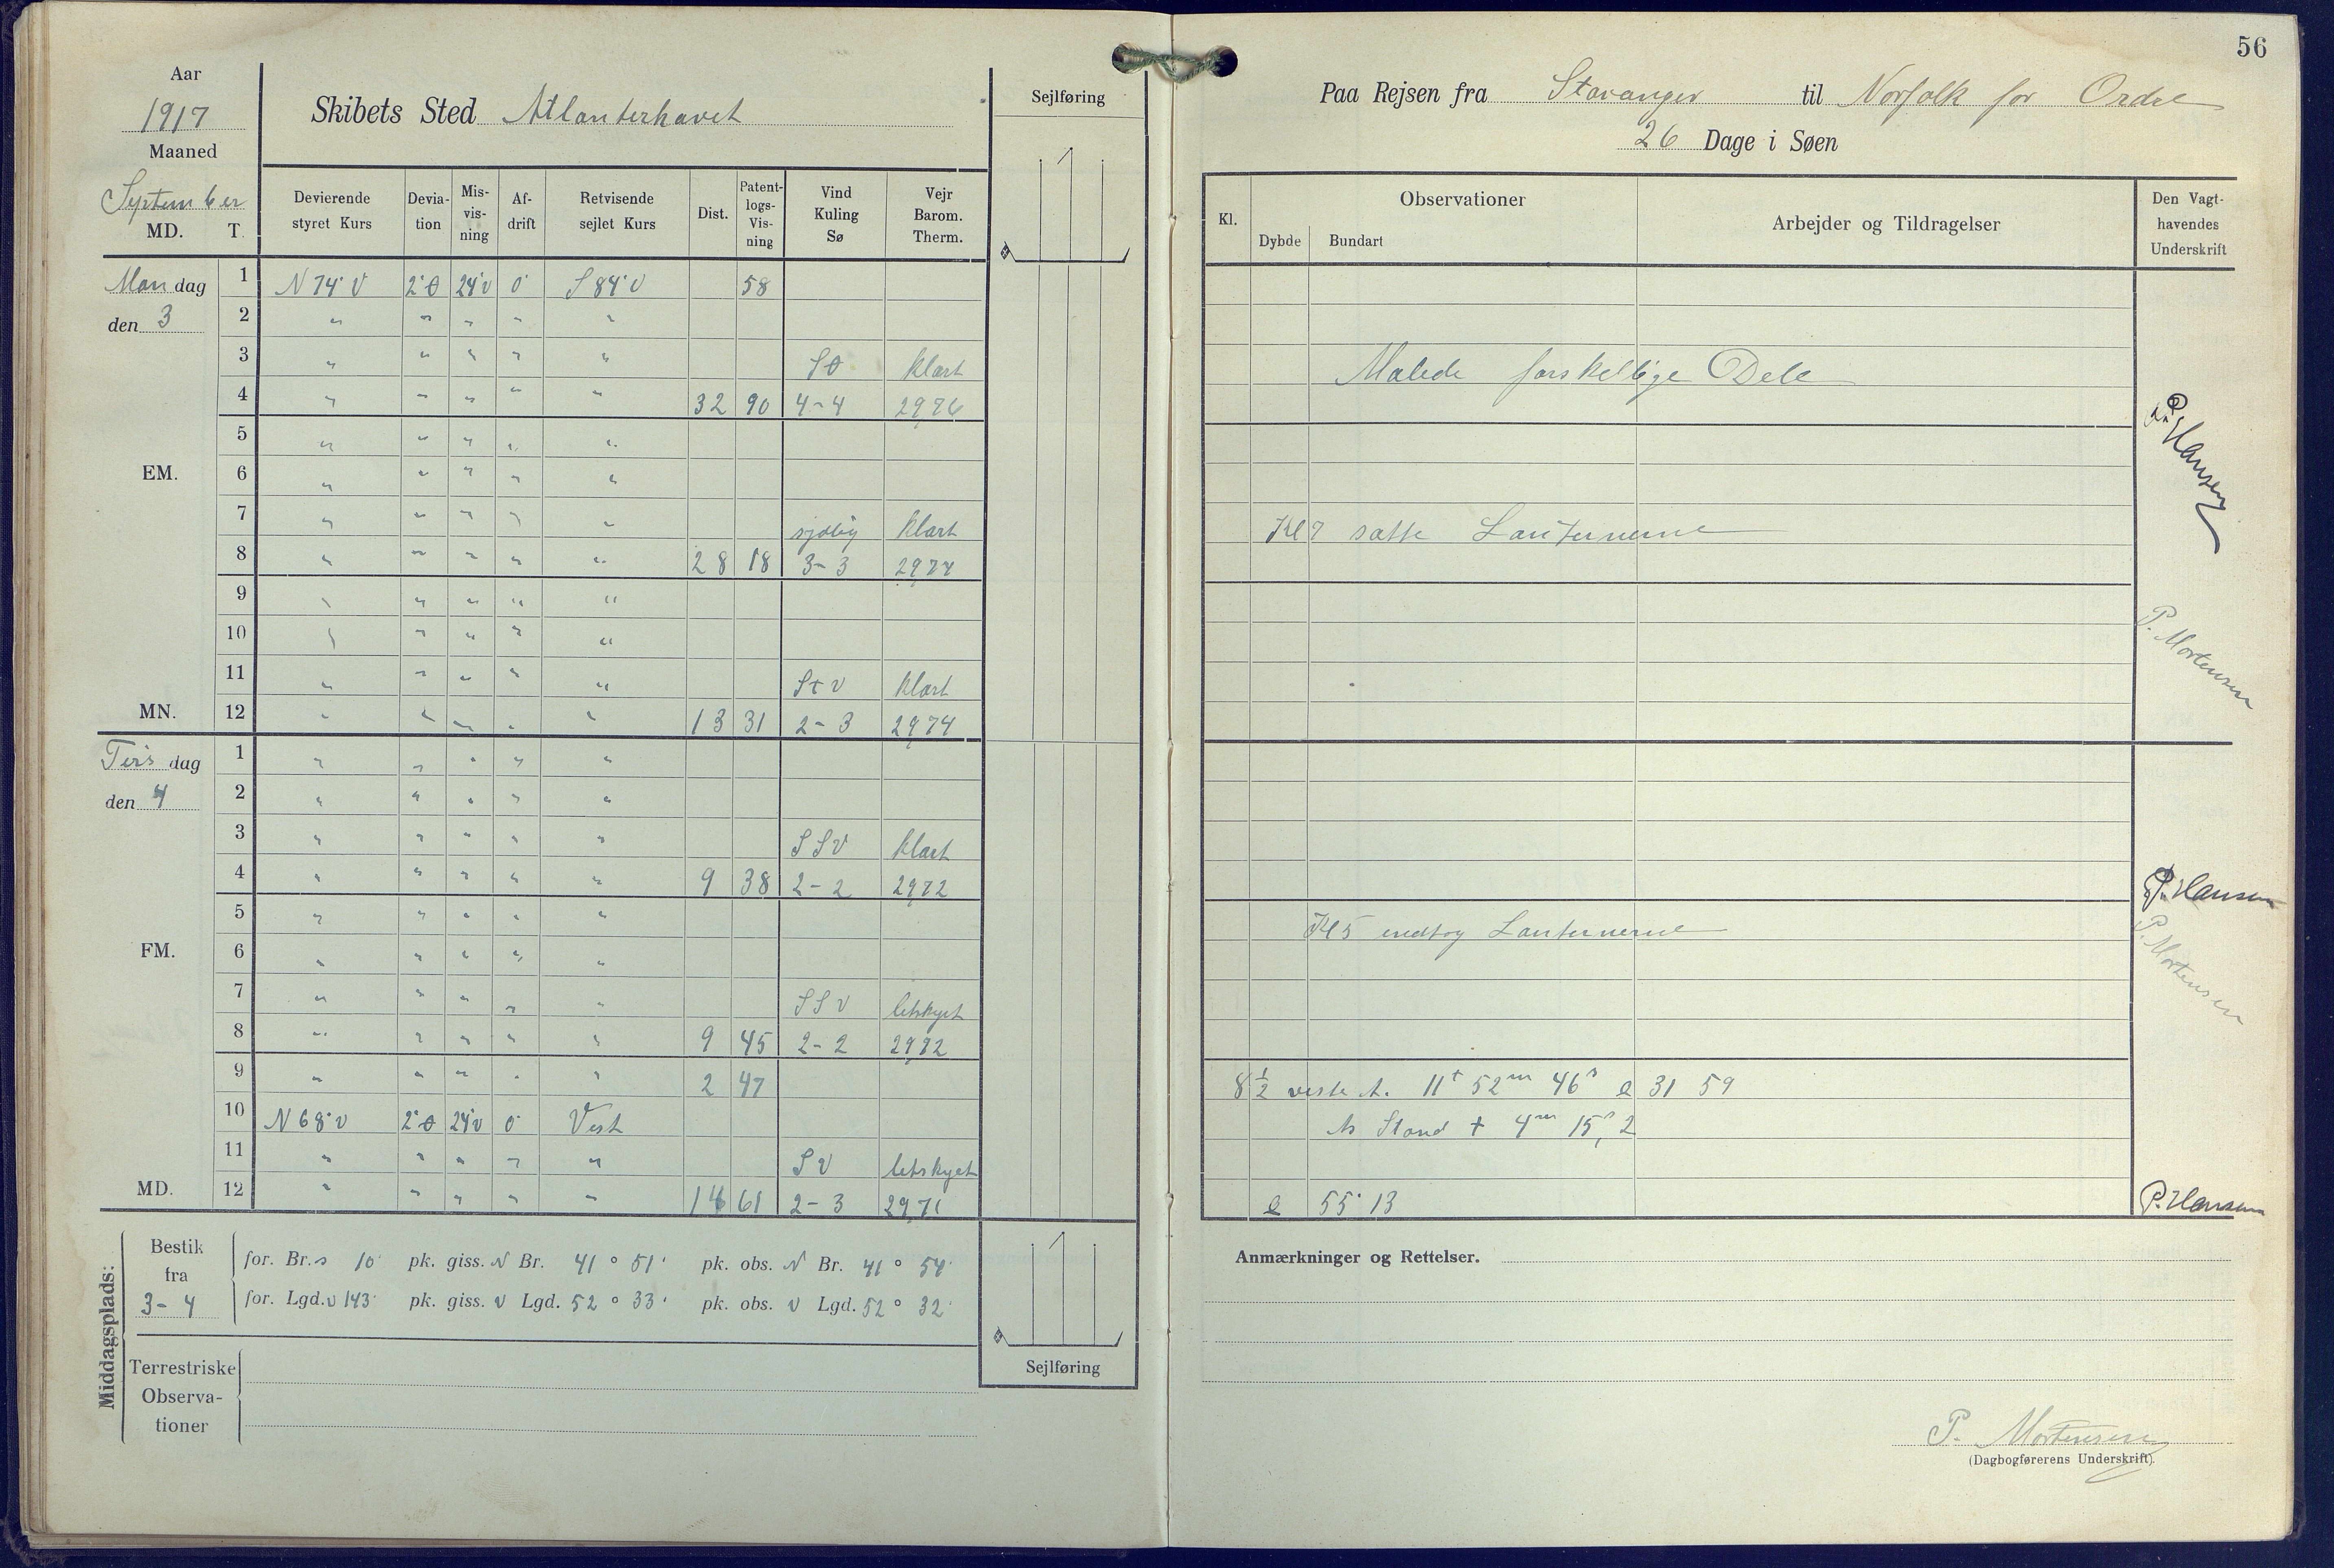 Aar
1917
Maaned
September
MD. T.
Skibets Sted Atlanterhavet
Sejlføring
Devierende styret Kurs
Deviation
Misvisning
Afdrift
Retvisende sejlet Kurs
Dist.
Patentlogs-Visning
Vind Kuling Sø
Vejr Barom. Therm.
Mandag den 3
1 N 74° V 2°Ø 24°V 0° S 84° V 58
2 " " " " "
3 " " " " " SØ Klart
4 " " " " " 32 90 4-4 29,76
5 " " " " "
EM. 6 " " " " "
7 " " " " " sydlig Klart
8 " " " " " 28 18 3-3 29,77
9 " " " " "
10 " " " " "
11 " " " " " StV Klart
MN. 12 " " " " " 13 31 2-3 29,74
Tirsdag den 4
1 " " " " "
2 " " " " "
3 " " " " " SSV Klart
4 " " " " " 9 38 2-2 29,72
5 " " " " "
FM. 6 " " " " "
7 " " " " " SSV letskyet
8 " " " " " 9 45 2-2 29,72
9 " " " " " 2 47
10 N 68° V 2°Ø 24°V 0° Vest
11 " " " " " SV letskyet
MD. 12 " " " " " 14 61 2-3 29,71
Middagsplads:
Bestik fra 3-4
for. Br. s 10' pk. giss. N Br. 41° 51' pk. obs. N Br. 41° 54'
for. Lgd. v 143' pk. giss. v Lgd. 52° 33' pk. obs. v Lgd. 52° 32'
Terrestriske Observationer
Sejlføring
56
Paa Rejsen fra Stavanger til Norfolk for Ordre
26 Dage i Søen
Kl.
Observationer
Dybde Bundart
Arbejder og Tildragelser
Den Vagthavendes Underskrift
Malede forskellige Dele
P. Hansen
Kl 7 satte Lanternerne
P. Mortensen
P. Hansen
Kl 5 indtog Lanternerne
P. Mortensen
8 1/2 viste t. 11 t 52 m 46 s 31 59
Stand + 4 m 15,s 2
55° 13
P. Hansen
Anmærkninger og Rettelser.
P. Mortensen
(Dagbogførerens Underskrift).